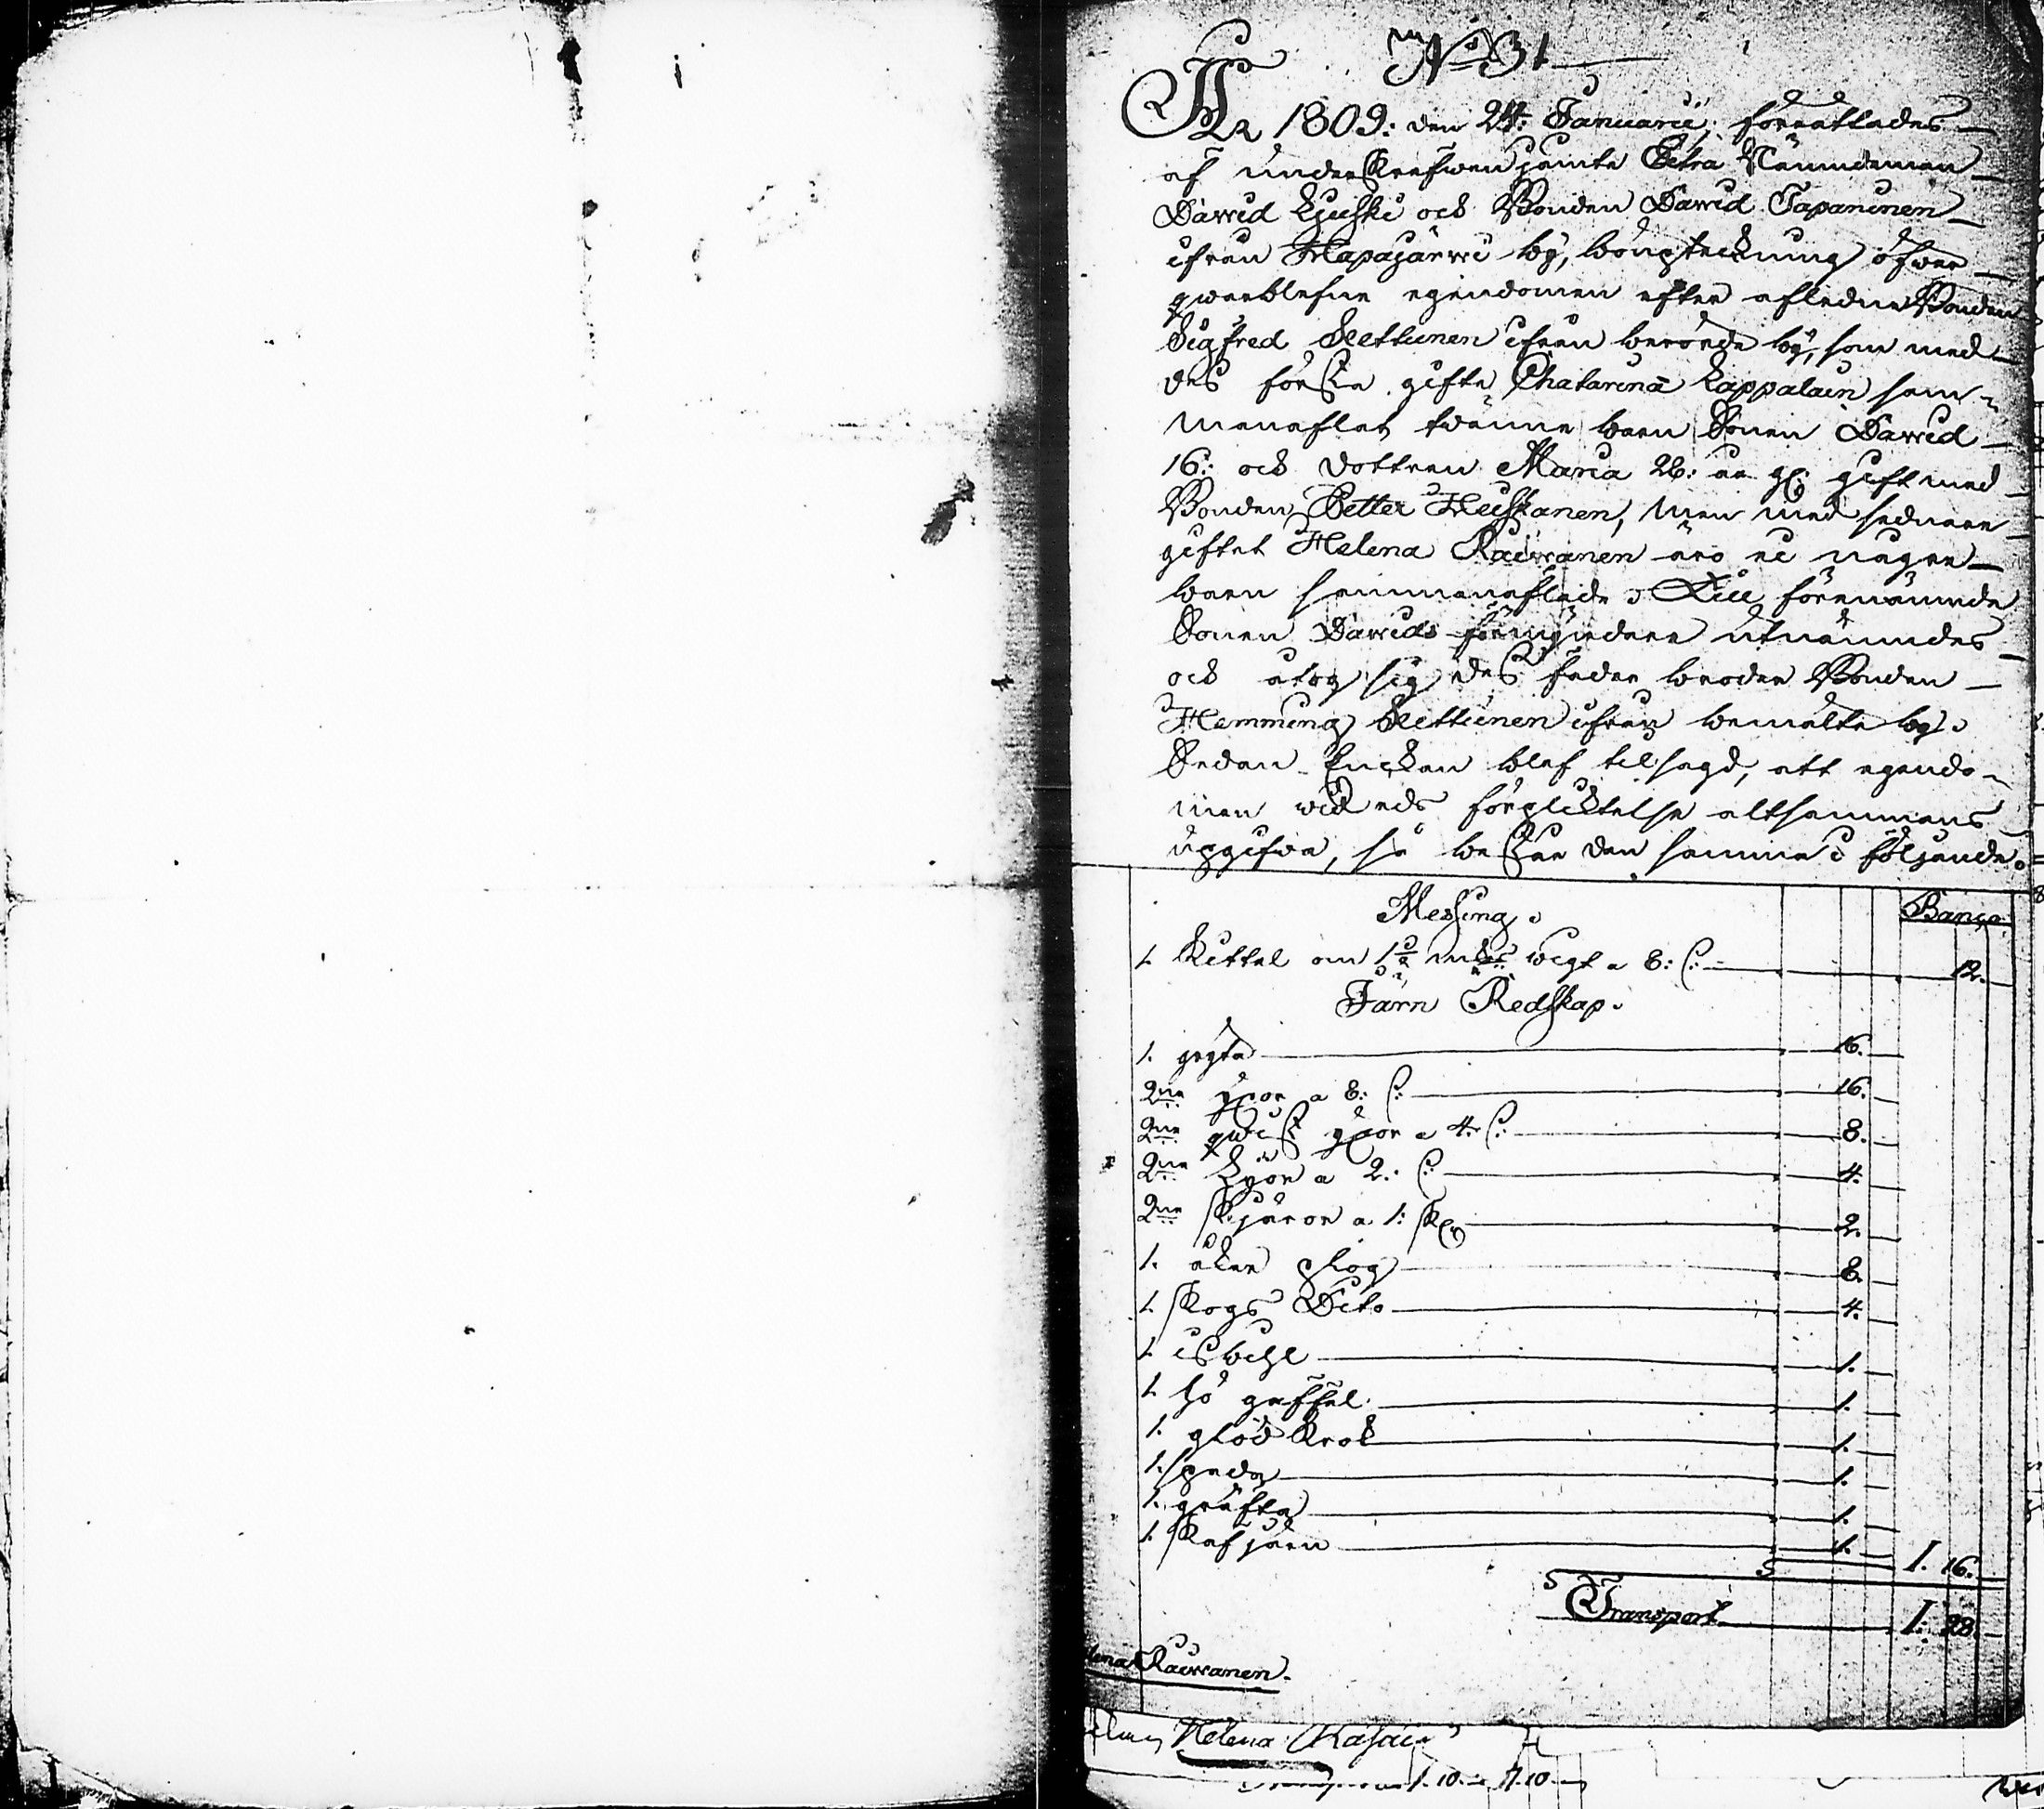 No 31
År 1809: den 24: Januarii: förrättades
af underskrefwen jemte Extra Nämndeman
Dawid Kjiski och Bonden Dawid Tapaninen
ifrån Hapajärwi by, bouptekning öfwer
qwarblefne egendomen efter aflednе Bonden
Sigfred Kettunen ifrån berörde by, som med
des första gifte Chatarina Lappalain sam-
manaflat twänne barn Sonen Dawid
16: och dottren Maria 26: år gl: gift med
Bonden Petter Heiskanen, men med sednare
giftet Helena Räisänen äro ei någre
barn sammanaflade. Till förenämnde
Sonen Dawids förmyndare utnämndes
och åtog sig des fader broder Bonden
Hemming Kettunen ifrån bemälte by.
Sedan Enckan blef tilsagd, att egendo-
men wid eds förpliktelse altsammans
upgifwa, så består den samma i följande.
Messing. Banco
1. Kittel om 1 1/2 mks wigt a 8: s: 12.
Järn Redskap.
1. gryta 16.
2ne yxor a 8: s: 16.
2ne qwist yxor a 4: s: 8.
2ne Lijor a 2: s: 4.
2ne skjäror a 1: sk 2.
1. åker plog 8.
1. skogs Dito 4.
1. isbihl 1.
1. hö gaffel 1.
1. glöd krok 1.
1. spada 1.
1. gräfta 1.
1. skafjärn 1. 1. 16.
Transport 1. 28.
lena Räisänen.
Helena
1.10. 1.10